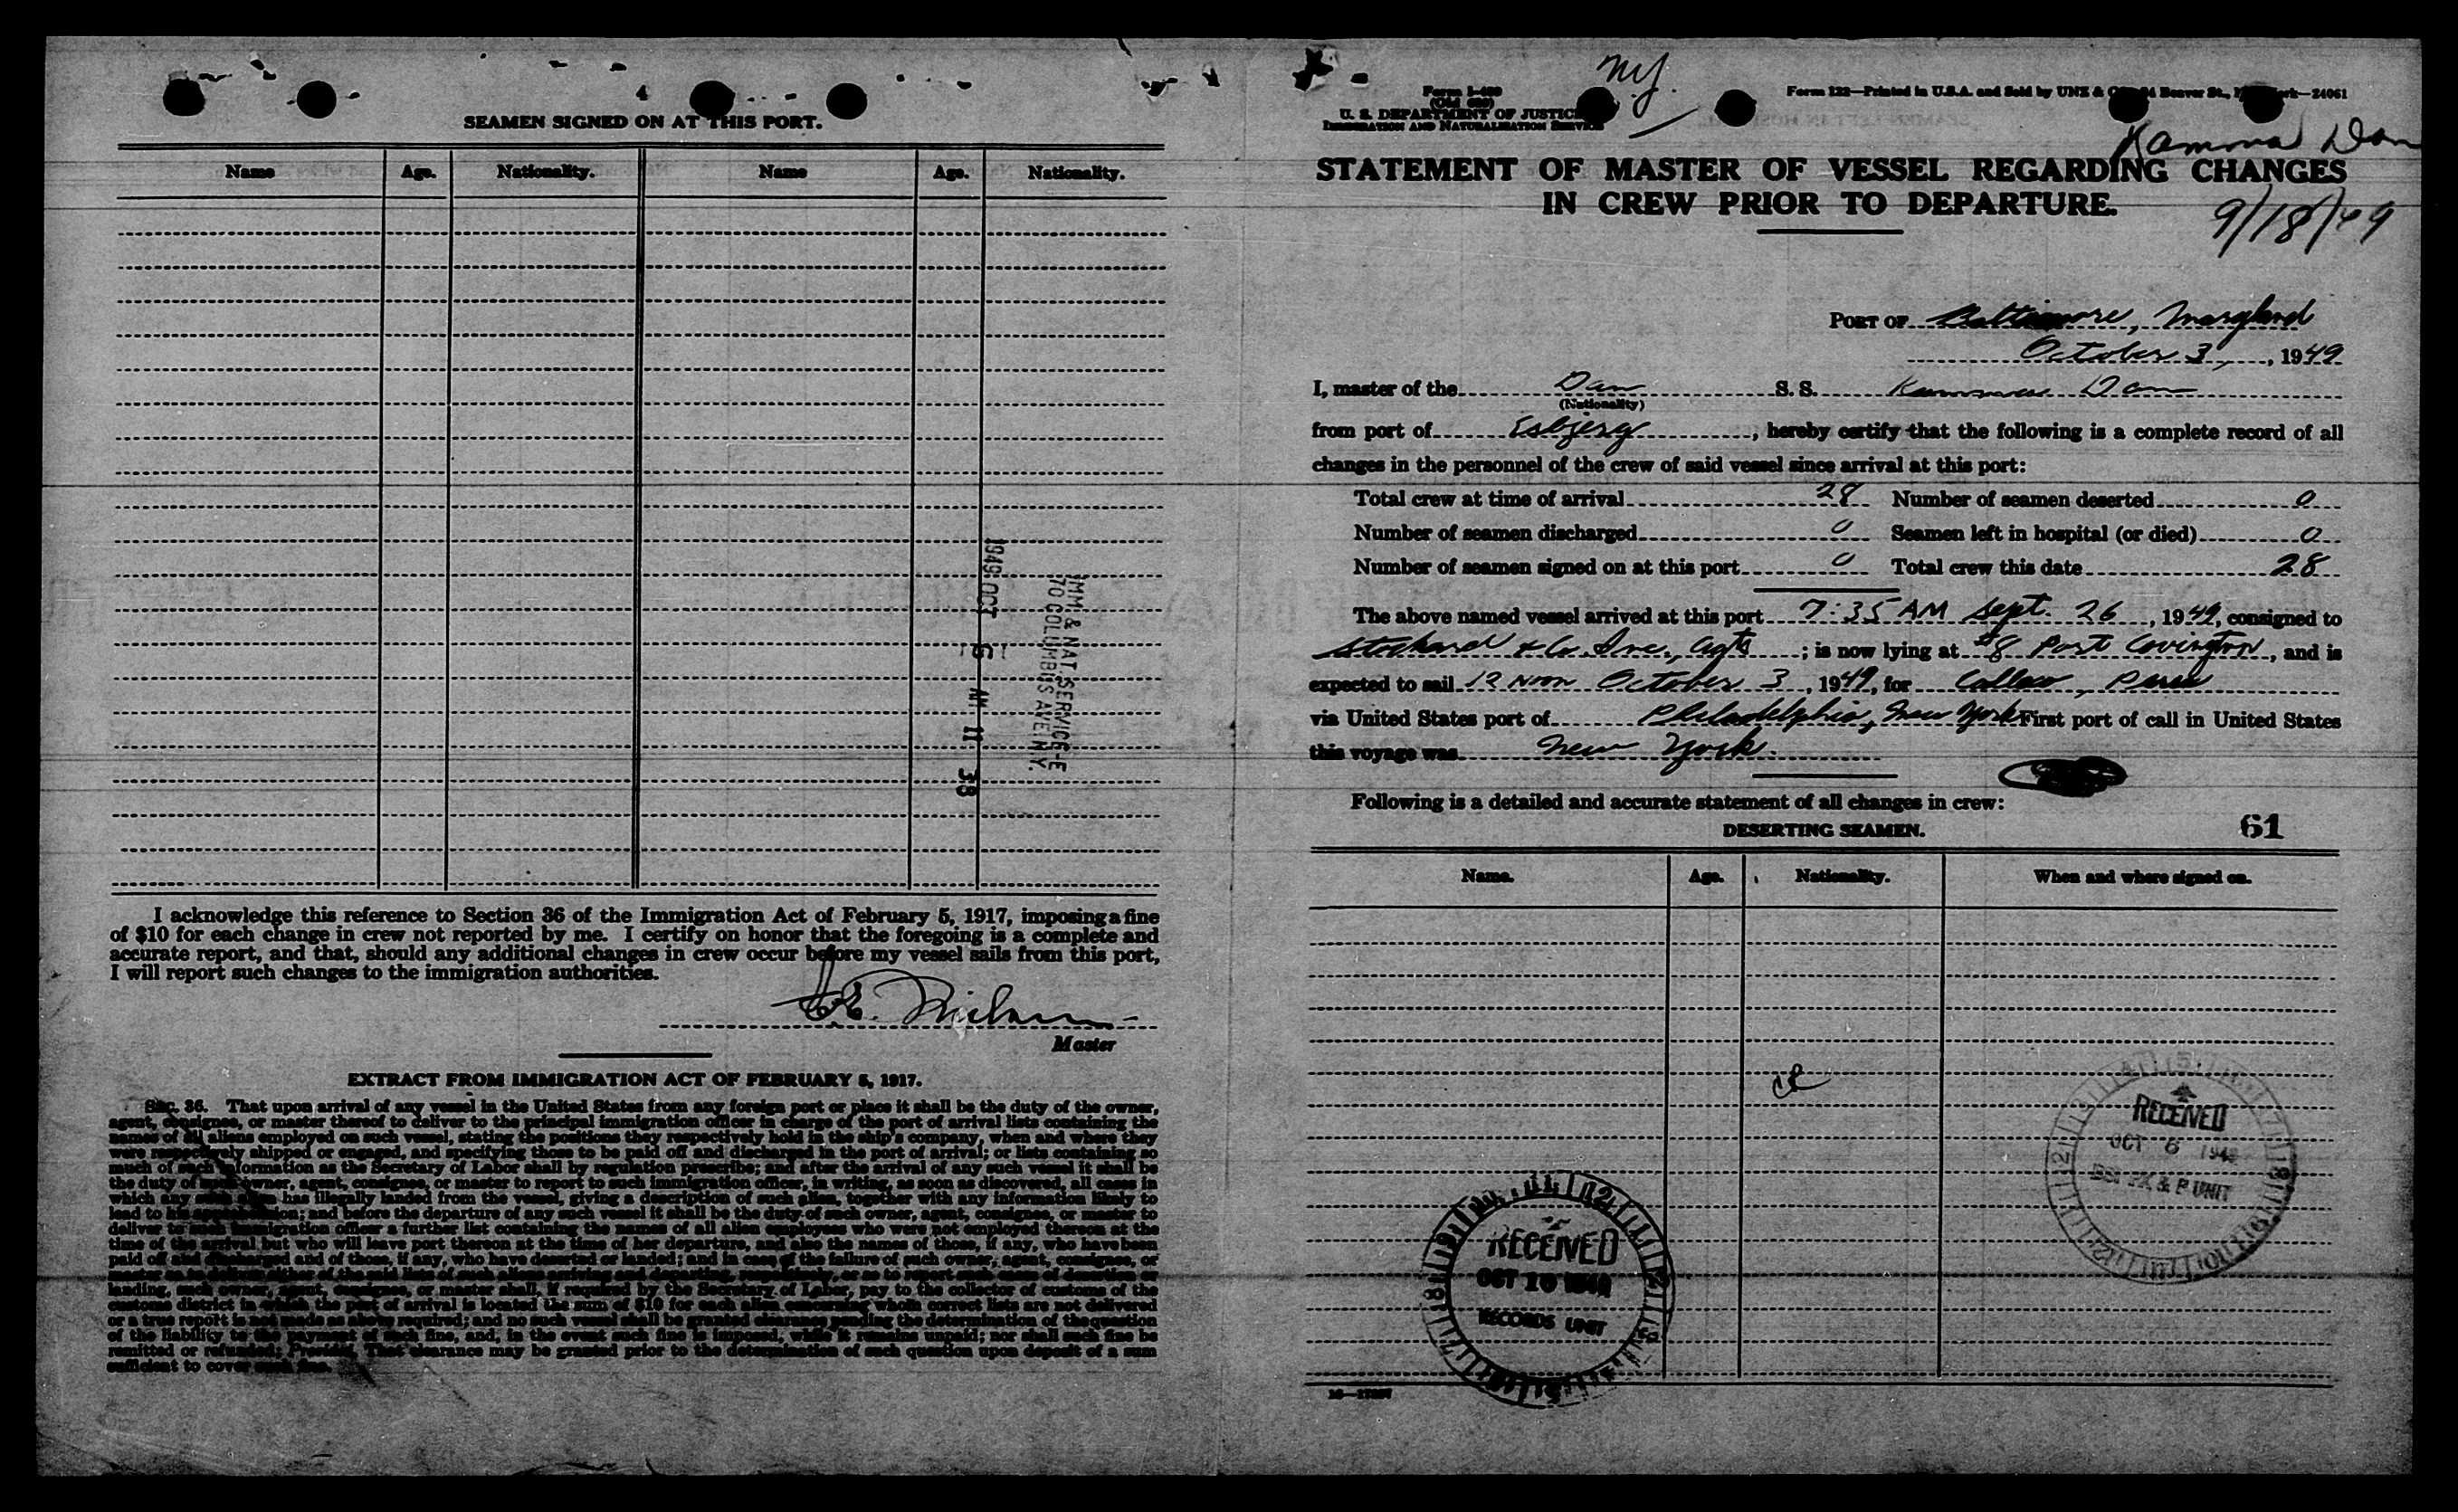 4
SEAMEN SIGNED ON AT THIS PORT.
Name Age. Nationality. Name Age. Nationality.
1949 OCT 6 AM 11 38
IMM & NAT SERVICE-E
70 COLUMBUS AVE N.Y.
I acknowledge this reference to Section 36 of the Immigration Act of February 5, 1917, imposing a fine
of $10 for each change in crew not reported by me. I certify on honor that the foregoing is a complete and
accurate report, and that, should any additional changes in crew occur before my vessel sails from this port,
I will report such changes to the immigration authorities.
Master
EXTRACT FROM IMMIGRATION ACT OF FEBRUARY 5, 1917.
Sec. 36. That upon arrival of any vessel in the United States from any foreign port or place it shall be the duty of the owner,
agent, consignee, or master thereof to deliver to the principal immigration officer in charge of the port of arrival lists containing the
names of all aliens employed on such vessel, stating the positions they respectively hold in the ship's company, when and where they
were respectively shipped or engaged, and specifying those to be paid off and discharged in the port of arrival; or lists containing so
much of such information as the Secretary of Labor shall by regulation prescribe; and after the arrival of any such vessel it shall be
the duty of such owner, agent, consignee, or master to report to such immigration officer, in writing, as soon as discovered, all cases in
which any such alien has illegally landed from the vessel, giving a description of such alien, together with any information likely to
lead to his apprehension; and before the departure of any such vessel it shall be the duty of such owner, agent, consignee, or master to
deliver to such immigration officer a further list containing the names of all alien employees who were not employed thereon at the
time of the arrival but who will leave port thereon at the time of her departure, and also the names of those, if any, who have been
paid off and discharged, and of those, if any, who have deserted or landed; and in case of the failure of such owner, agent, consignee, or
landing, such owner, agent, consignee, or master shall, if required by the Secretary of Labor, pay to the collector of customs of the
customs district in which the port of arrival is located the sum of $10 for each alien concerning whom correct lists are not delivered
or a true report is not made as above required; and no such vessel shall be granted clearance pending the determination of the question
of the liability to the payment of such fine, and, in the event such fine is imposed, while it remains unpaid; nor shall such fine be
remitted or refunded: Provided, That clearance may be granted prior to the determination of such question upon deposit of a sum
sufficient to cover such fine.
U. S. DEPARTMENT OF JUSTICE
Immigration and Naturalization Service
Form 122—Printed in U.S.A. and Sold by UNZ & Beaver St., 24061
Dan
STATEMENT OF MASTER OF VESSEL REGARDING CHANGES
IN CREW PRIOR TO DEPARTURE.
9/18/49
Port of Baltimore, Maryland
October 3, 1949
I, master of the Dan S. S. Dan
(Nationality)
from port of Esbjerg, hereby certify that the following is a complete record of all
changes in the personnel of the crew of said vessel since arrival at this port:
Total crew at time of arrival 28 Number of seamen deserted 0
Number of seamen discharged 0 Seamen left in hospital (or died) 0
Number of seamen signed on at this port 0 Total crew this date 28
The above named vessel arrived at this port 7:35 AM Sept. 26, 1949, consigned to
Stockard & Co. Inc., Agts; is now lying at #8 Port Covington, and is
expected to sail 12 Noon October 3, 1949, for Callao, Peru
via United States port of Philadelphia, New York First port of call in United States
this voyage was New York.
Following is a detailed and accurate statement of all changes in crew:
DESERTING SEAMEN.
61
Name. Age. Nationality. When and where signed on.
RECEIVED
OCT 6 1949
& P UNIT
RECEIVED
OCT 10
RECORDS UNIT